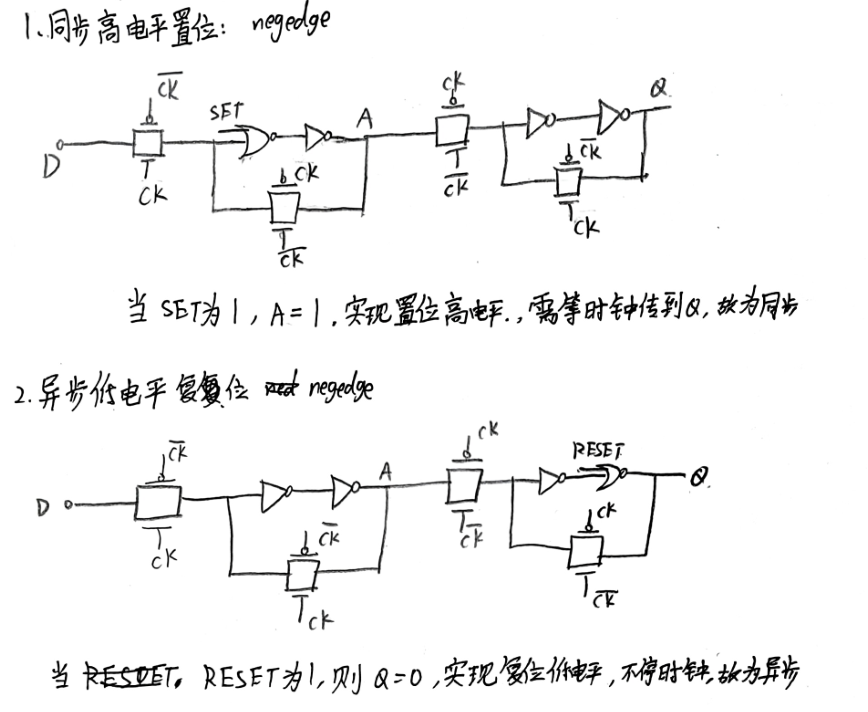 1、同步高电平置位: negedge
CK̅
CK
SET
A
Q
D
CK
CK
CK̅
CK̅
CK̅
CK
当 SET为1, A=1. 实现置位高电平., 需等时钟传到Q, 故为同步
2. 异步低电平复位 negedge
CK̅
CK
RESET
A
D
Q
CK̅
CK
CK
CK̅
CK
CK̅
当 RESET为1, 则 Q=0, 实现复位低电平, 不停时钟, 故为异步